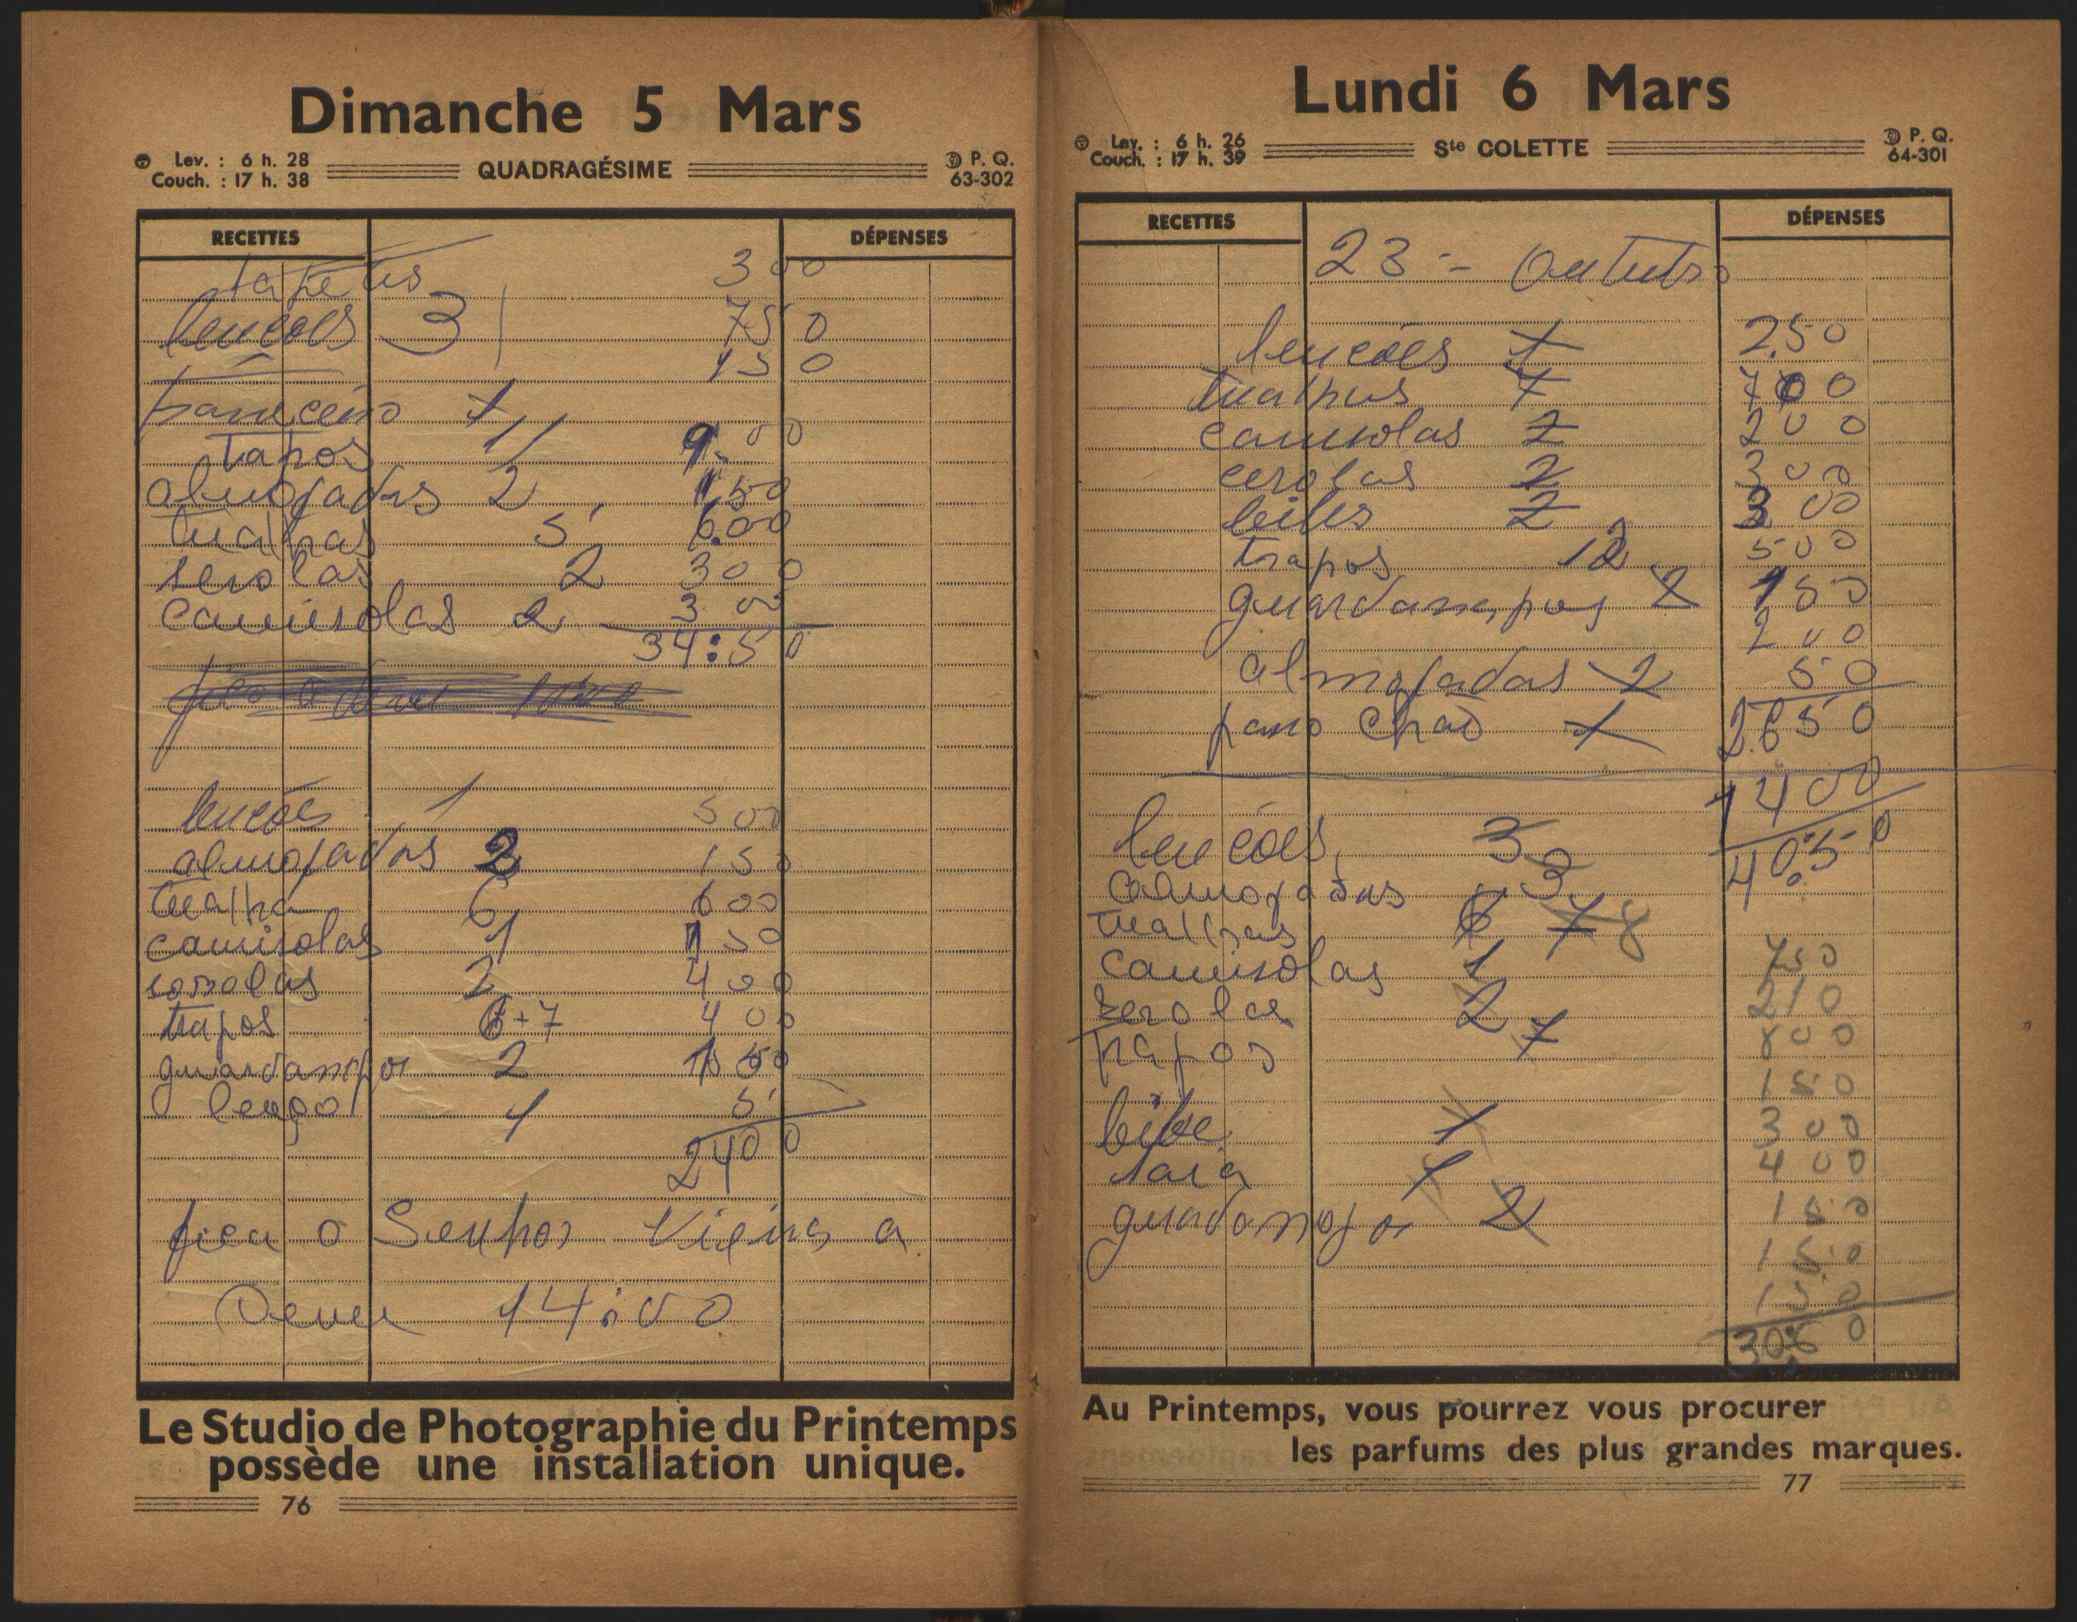 Dimanche 5 Mars
Lev. : 6 h. 28
Couch. : 17 h. 38
QUADRAGÉSIME
P. Q.
63-302
RECETTES
DÉPENSES
tapetes 300
lencoes 3 750
150
1
tapos 11 900
almofadas 2 150
tualhas 5 600
serolas 2 300
camisolas 2 300
34:50
lencoes 1 500
almofadas 2 150
tualha 6 600
camisolas 1 150
serolas 2 400
trapos 6+7 400
guardanapos 2 150
lenço 1 5
2400
fica o Senhor Vieira a
Dever 14:00
Le Studio de Photographie du Printemps
possède une installation unique.
76
Lundi 6 Mars
Lev. : 6 h. 26
Couch. : 17 h. 39
Ste COLETTE
P. Q.
64-301
RECETTES
DÉPENSES
23 - Outubro
lencóes 1 250
tualhas 7 700
camisolas 2 200
cerolas 2 300
bibes 2 300
trapos 12 500
guardanapos 2 150
200
almofadas 2 50
pano chão 1 2650
1400
4050
lencóes 3
almofadas 3
tualhas 6 7 8
camisolas 1 750
zerolas 2 210
trapos 7 800
150
bibe 1 300
saia 1 400
guardanapos 2 150
150
150
3060
Au Printemps, vous pourrez vous procurer
les parfums des plus grandes marques.
77